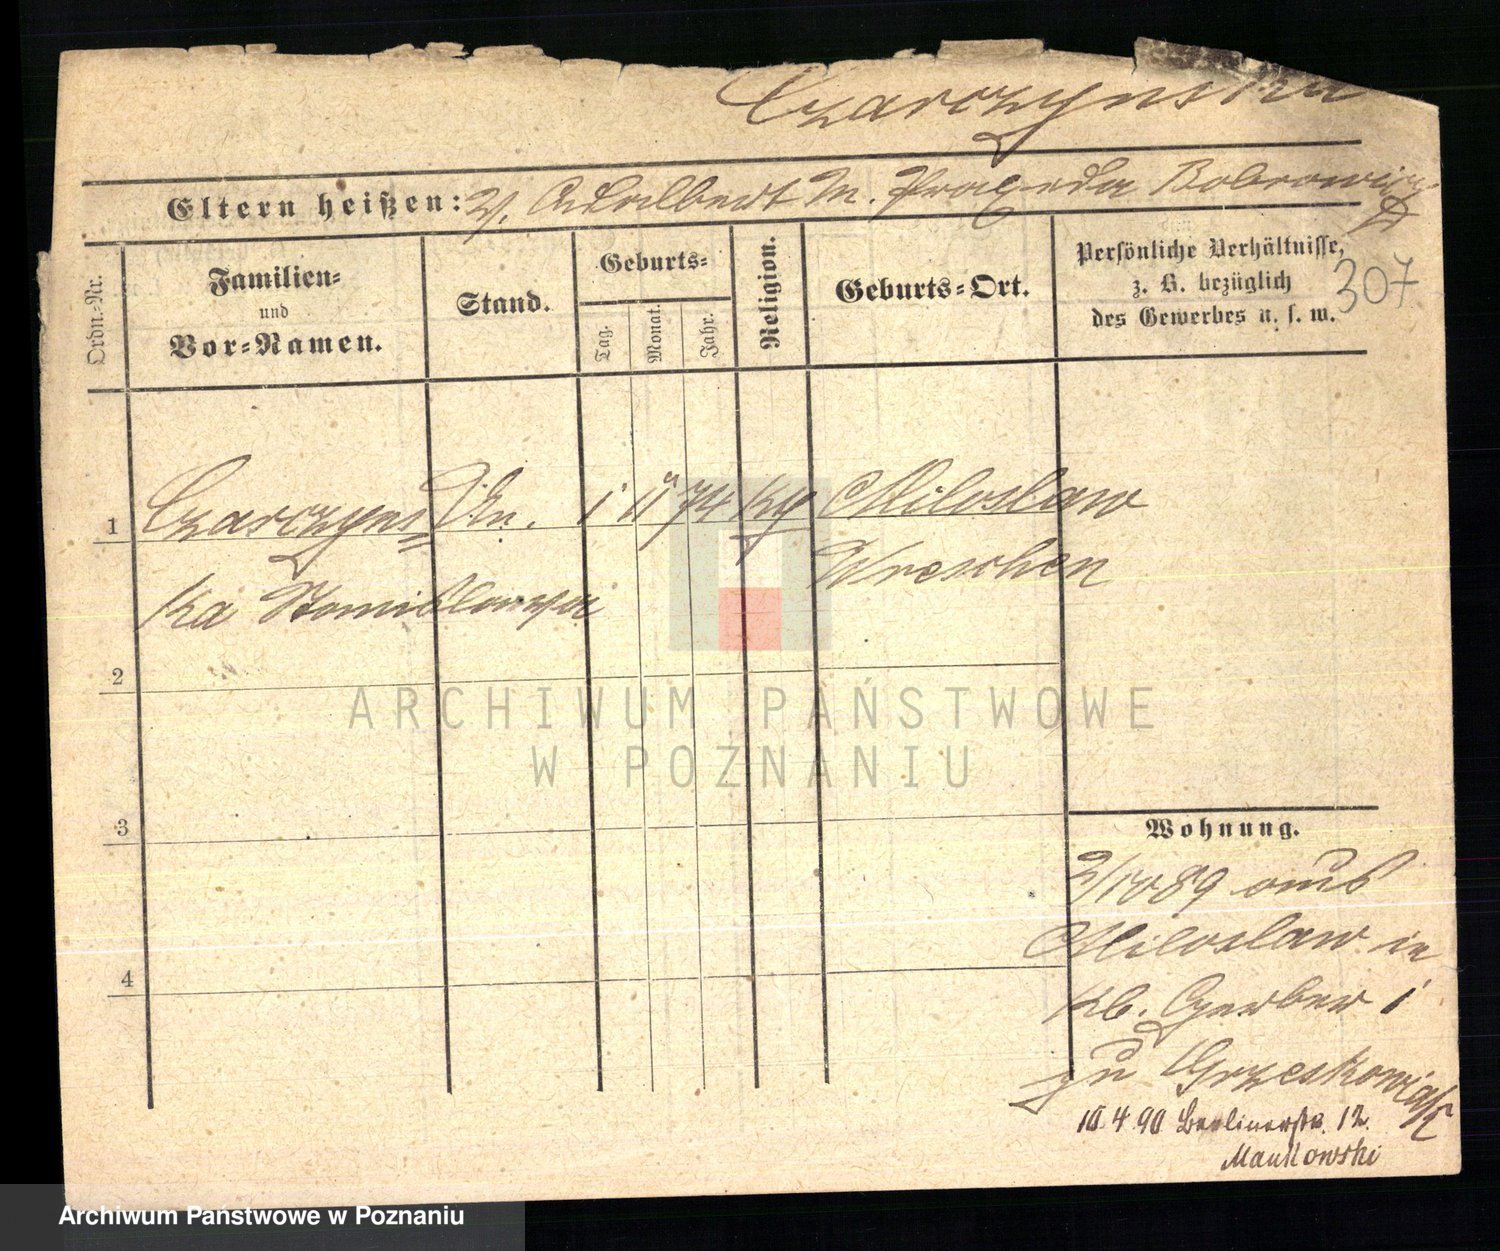 Czarczynska
Eltern heißen: V. Adalbert M. Praxeda Bobrowicz
307
Ordn.-Nr.
Familien-
und
Vor-Namen.
Stand.
Geburts-
Tag.
Monat.
Jahr.
Religion.
Geburts-Ort.
Persönliche Verhältnisse,
z. B. bezüglich
des Gewerbes u. s. w.
1 Czarczyns= 1 11 74 Miloslaw
ka Stanislawa Wreschen
2
3
4
Wohnung.
2/10 89 aus
Miloslaw in
Kb. Gerber 1
zu Grzeskowiak
10.4 90 Berlinerstr. 12.
Mankowski
ARCHIWUM PAŃSTWOWE
W POZNANIU
Archiwum Państwowe w Poznaniu